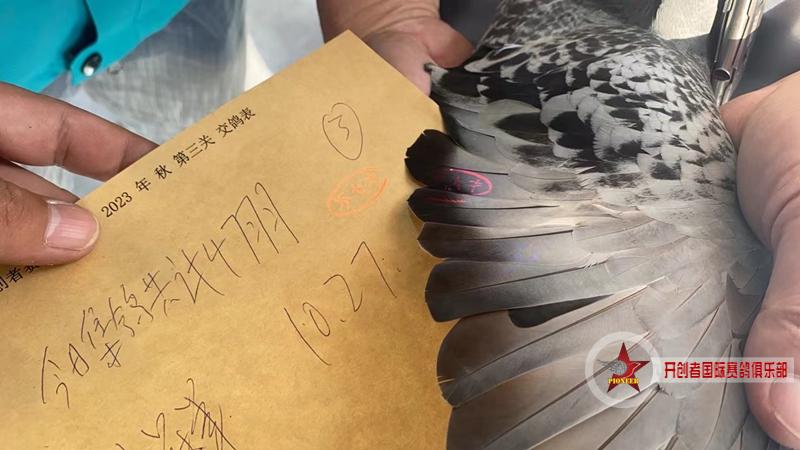 2023 年 秋 第三关 交鸽表
③
今日集鸽共计47羽
10.27.
开创者国际赛鸽俱乐部
PIONEER